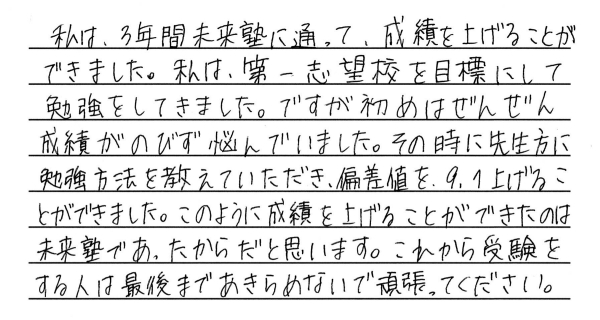 私は、3年間未来塾に通って、成績を上げることが
できました。私は、第一志望校を目標にして
勉強をしてきました。ですが初めはぜんぜん
成績がのびず悩んでいました。その時に先生方に
勉強方法を教えていただき、偏差値を、9.1上げるこ
とができました。このように成績を上げることができたのは
未来塾であったからだと思います。これから受験を
する人は最後まであきらめないで頑張ってください。